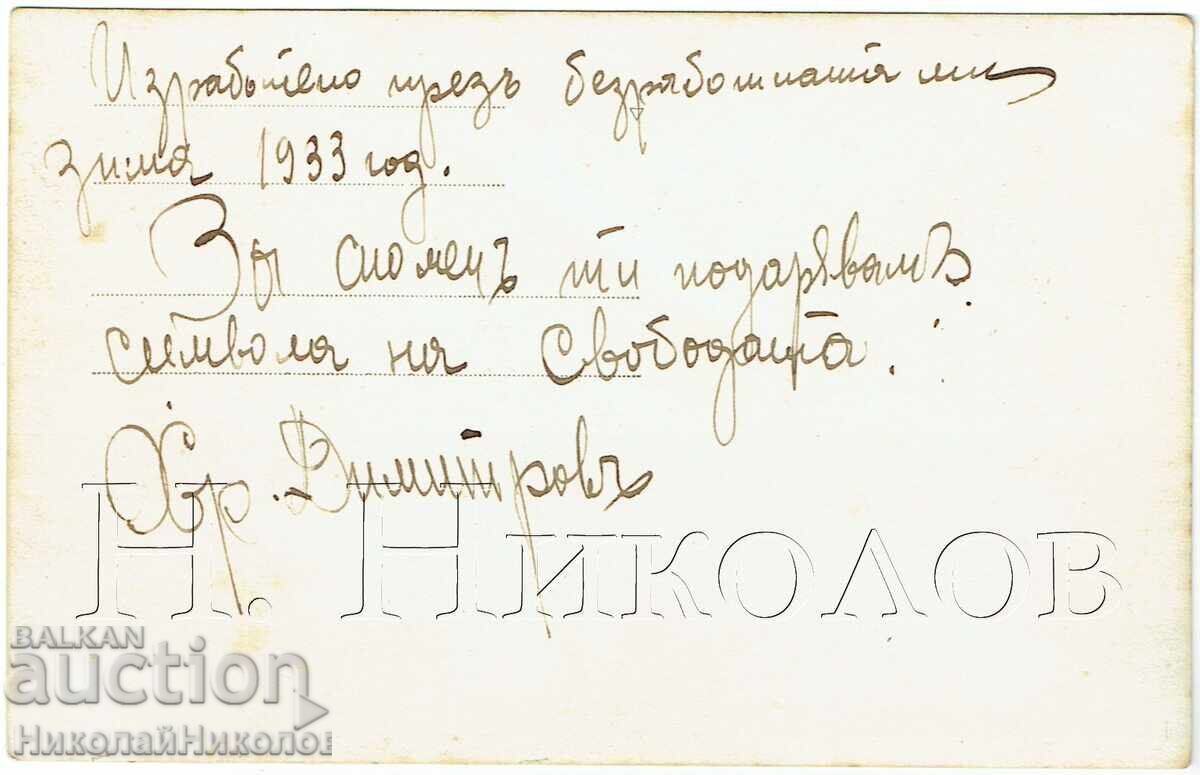 Изработено презъ безработната ми
зима 1933 год.
За споменъ ти подарявамъ
символа на Свободата.
Хр. Димитровъ
Н. Николов
BALKAN
auction
НиколайНиколов